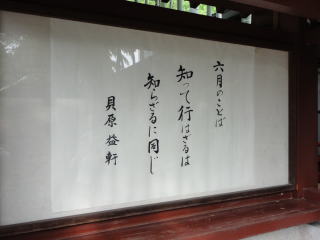 六月のことば
知って行はざるは
知らざるに同じ
貝原益軒